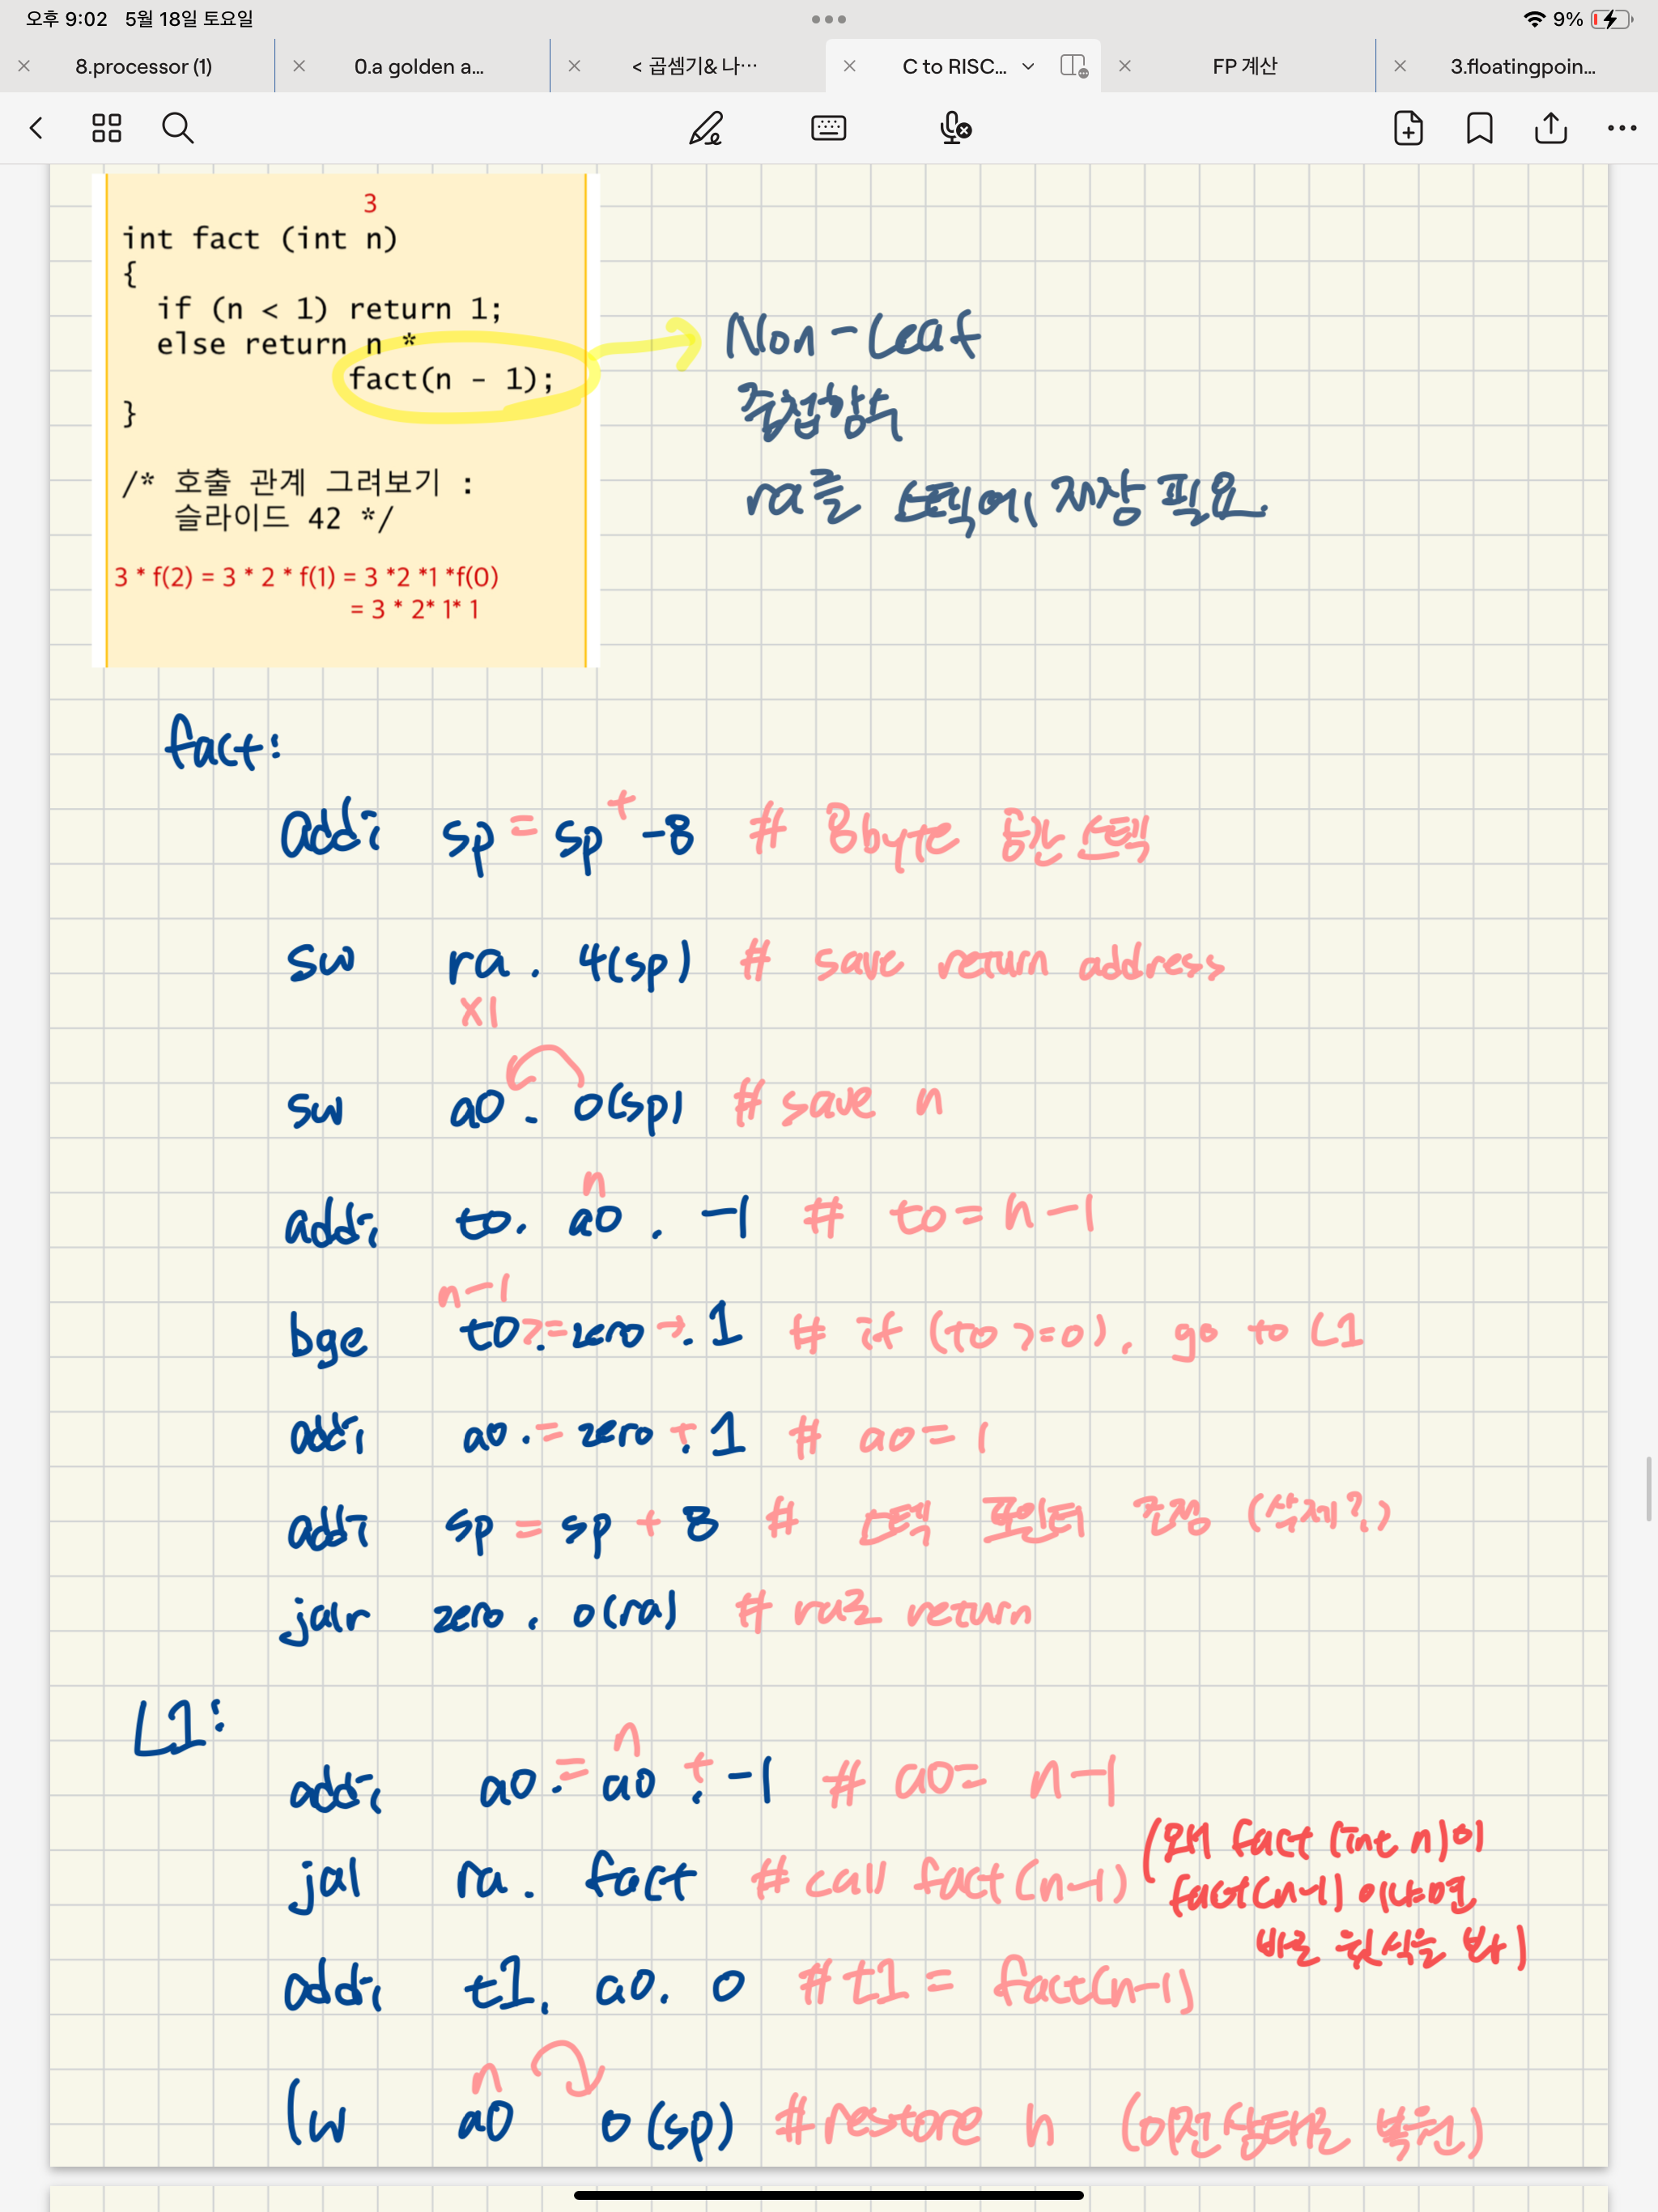 오후 9:02 5월 18일 토요일
9%
8.processor (1)
0.a golden a...
< 곱셈기& 나...
C to RISC...
FP 계산
3.floatingpoin...
3
int fact (int n)
{
if (n < 1) return 1;
else return n *
fact(n - 1);
}
/* 호출 관계 그려보기 :
슬라이드 42 */
3 * f(2) = 3 * 2 * f(1) = 3 *2 *1 *f(0)
= 3 * 2* 1* 1
Non-Leaf
중첩함수
ra를 스택에 저장 필요.
fact:
addi sp = sp + -8 # 8byte 공간 스택
sw ra. 4(sp) # save return address
x1
sw a0. 0(sp) # save n
n
addi t0. a0. -1 # t0 = n-1
n-1
bge t0.>=zero→.1 # if (t0 >=0), go to L1
addi a0.= zero +. 1 # a0 = 1
addi sp = sp + 8 # 스택 포인터 조정 (삭제?)
jalr zero. 0(ra) # ra로 return
L1:
n
addi a0.= a0 +. -1 # a0= n-1
jal ra. fact # call fact(n-1)
(왜 fact (int n)이
fact(n-1) 이냐면
바로 윗식을 봐)
addi t1, a0. 0 # t1 = fact(n-1)
n
lw a0 0(sp) # restore n (이전상태로 복원)